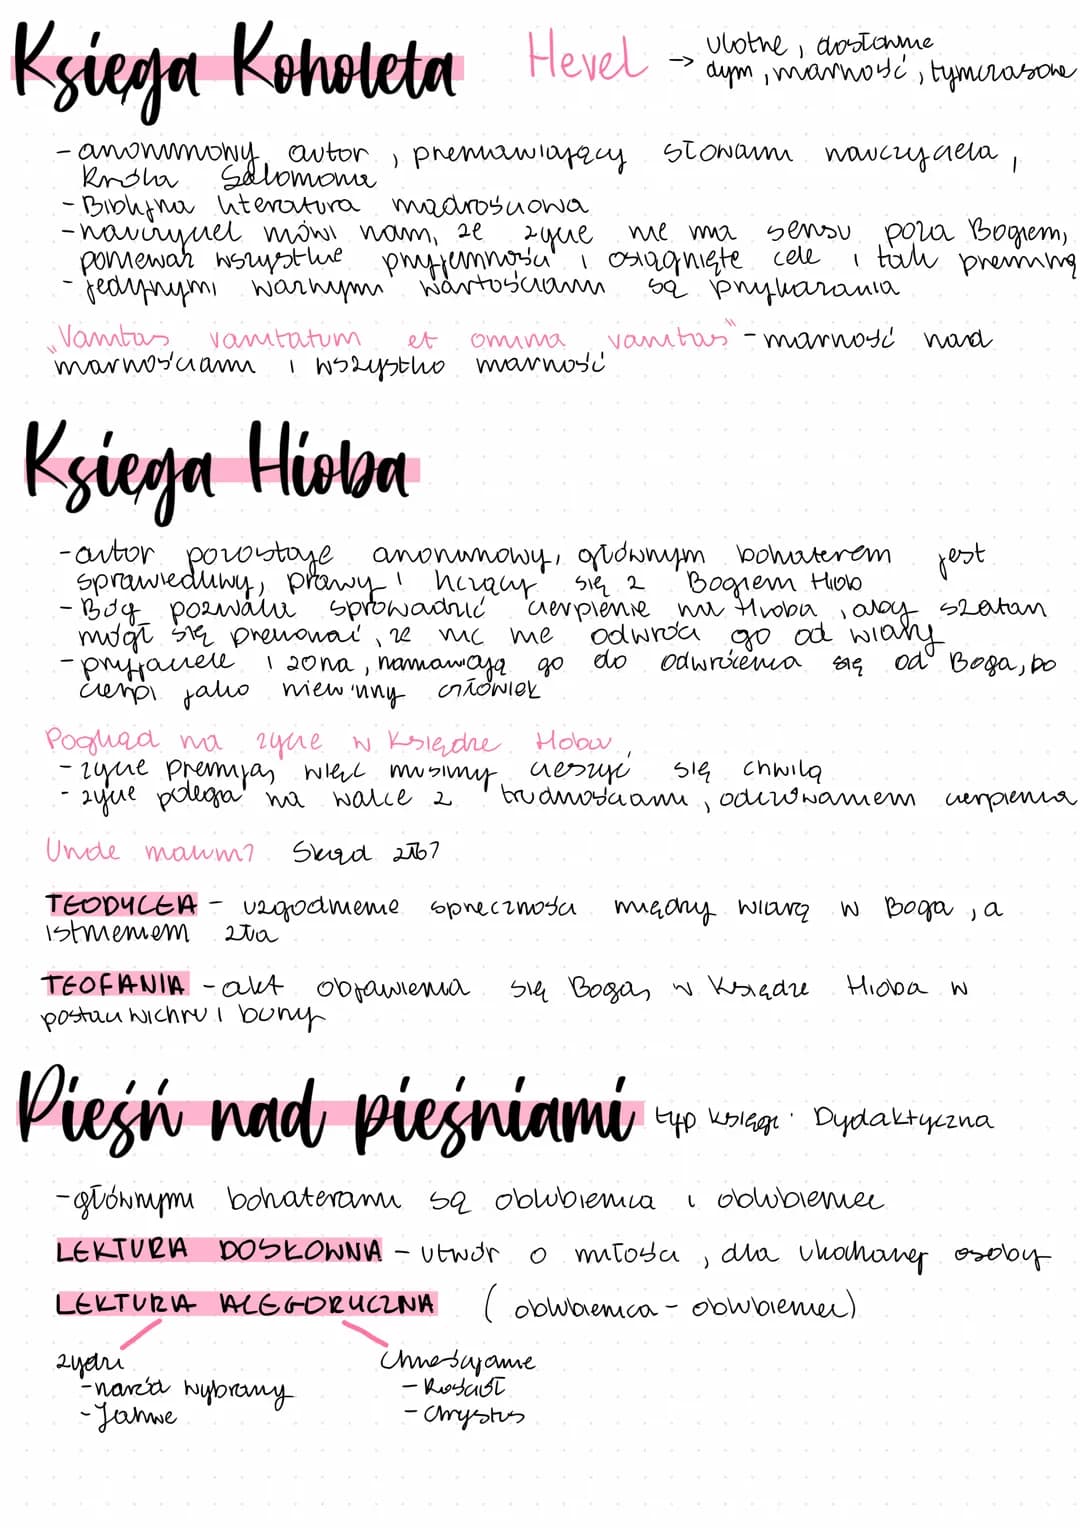 Księga Koholeta Hevel → ulotne, dosłownie
dym, marność, tymczasowe
- anonimowy autor, przemawiający słowami nauczyciela,
Króla Salomona
- Biblijna literatura mądrościowa
- nauczyciel mówi nam, że życie nie ma sensu poza Bogiem,
ponieważ wszystkie przyjemności i osiągnięte cele i tak przeminą
- jedynymi ważnymi wartościami są przykazania
„Vanitas vanitatum et omnia vanitas" - marność nad
marnościami i wszystko marność
Księga Hioba
- autor pozostaje anonimowy, głównym bohaterem jest
sprawiedliwy, prawy i liczący się z Bogiem Hiob
- Bóg pozwala sprowadzić cierpienie na Hioba, aby szatan
mógł się przekonać, że nic nie odwróci go od wiary
- przyjaciele i żona, namawiają go do odwrócenia się od Boga, bo
cierpi jako niewinny człowiek
Pogląd na życie w Księdze Hioba
- życie przemija, więc musimy cieszyć się chwilą
- życie polega na walce z trudnościami, odczuwaniem cierpienia
Unde malum? Skąd zło?
TEODYCEA - uzgodnienie sprzeczności między wiarą w Boga, a
istnieniem zła
TEOFANIA - akt objawienia się Boga, w Księdze Hioba w
postaci wichru i burzy
Pieśń nad pieśniami typ księgi: Dydaktyczna
- głównymi bohaterami są oblubienica i oblubieniec
LEKTURA DOSŁOWNA - utwór o miłości, dla ukochanej osoby
LEKTURA ALEGORYCZNA (oblubienica - oblubieniec)
żydzi Chrześcijanie
- naród wybrany - Kościół
- Jahwe - Chrystus